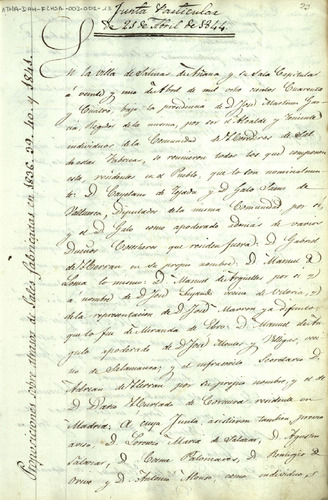 ATHA-DAH-FCHDA-002-002-13
Junta Particular
de 21 de Abril de 1844.
En la villa de Salinas de Añana y su Sala Capitular
a veinte y uno de Abril de mil ocho cientos Cuarenta
Cuatro, bajo la presidencia de D. José Martinez Gar
cia, Regidor de la misma, por ser el Alcalde y Teniente
individuos de la Comunidad de Herederos de Sal
de estas Fabricas, se reunieron todos los que componen
esta, residentes en el Pueblo, que lo son nominalmen
te: D. Cayetano de Tejada y D. Galo
Diputados de la misma Comunidad por sí,
y el D. Galo como apoderado ademas de varios
Dueños que residen fuera: D. Gabriel
de Herran en su propio nombre: D. Manuel de
Loma lo mismo: D. Manuel de Arguelles por sí y
a nombre de D. José vecino de Vitoria, y
de la representacion de D. José ya difunto,
que lo fue de Miranda de Ebro: D. Manuel de An
gulo apoderado de D. José y Villegas, veci
no de Salamanca; y el infrascrito Secretario D.
Adrian de Herran por su propio nombre, y el de
D. Dario Hurtado de Corcuera residente en
Madrid. A cuya Junta asistieron tambien, previo
aviso, D. Lorenzo Maria de Salazar, D. Agustin
Salazar, D. Cosme Palomares, D. Remigio de
y D. Antonio Alonso, como individuos, y
Proposiciones sobre atrasos de Sales fabricadas en 1836. 39. 40 y 1841.